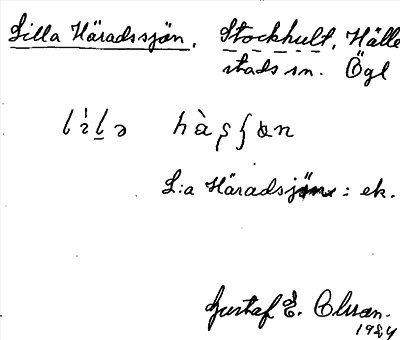 Lilla Häradssjön. Stockhult, Hälle
stads sn. Ögl
L:a Häradsjön : ek.
Gustaf E. Olsson.